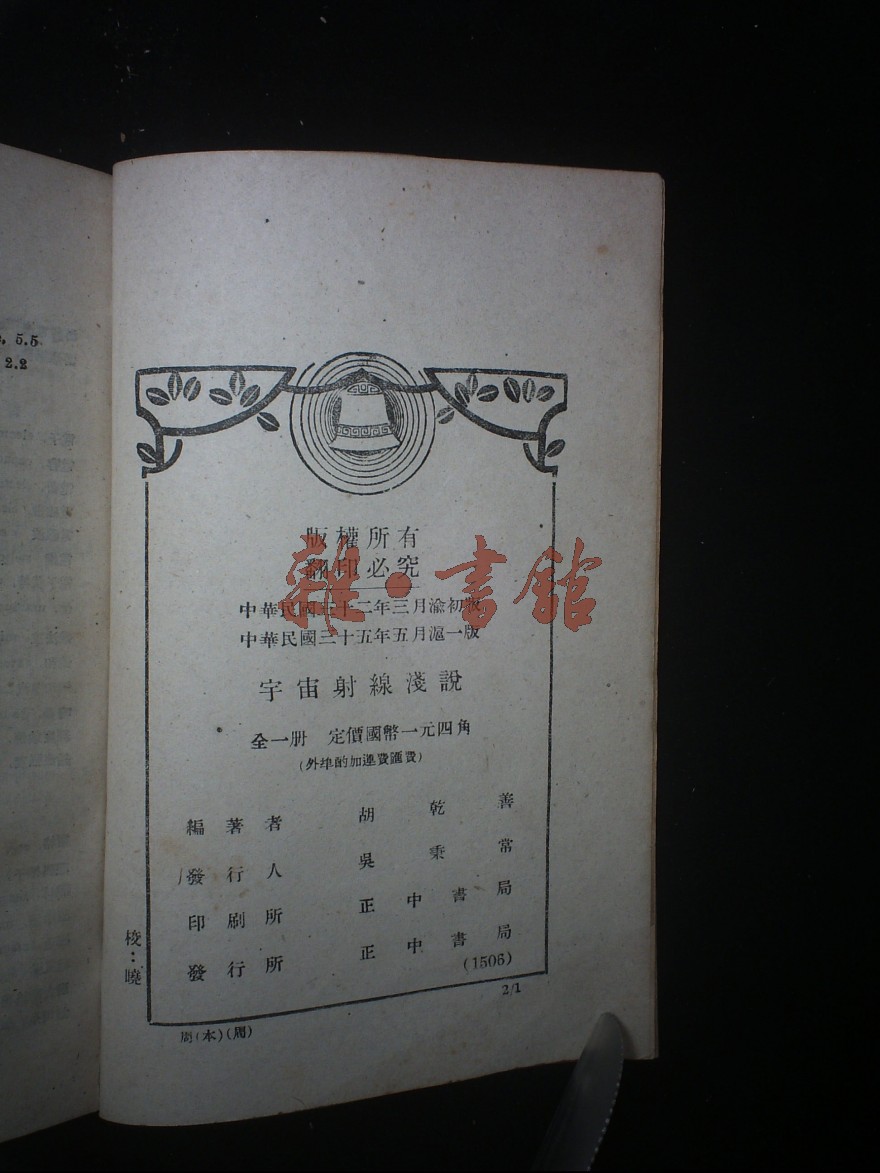 5.5
2.2
版權所有
翻印必究
雜·書館
中華民國三十二年三月渝初版
中華民國三十五年五月滬一版
宇宙射線淺說
全一册 定價國幣一元四角
(外埠酌加運費匯費)
編著者 胡乾善
發行人 吳秉常
印刷所 正中書局
發行所 正中書局
(1506)
校:曉
2/1
周(木)(周)